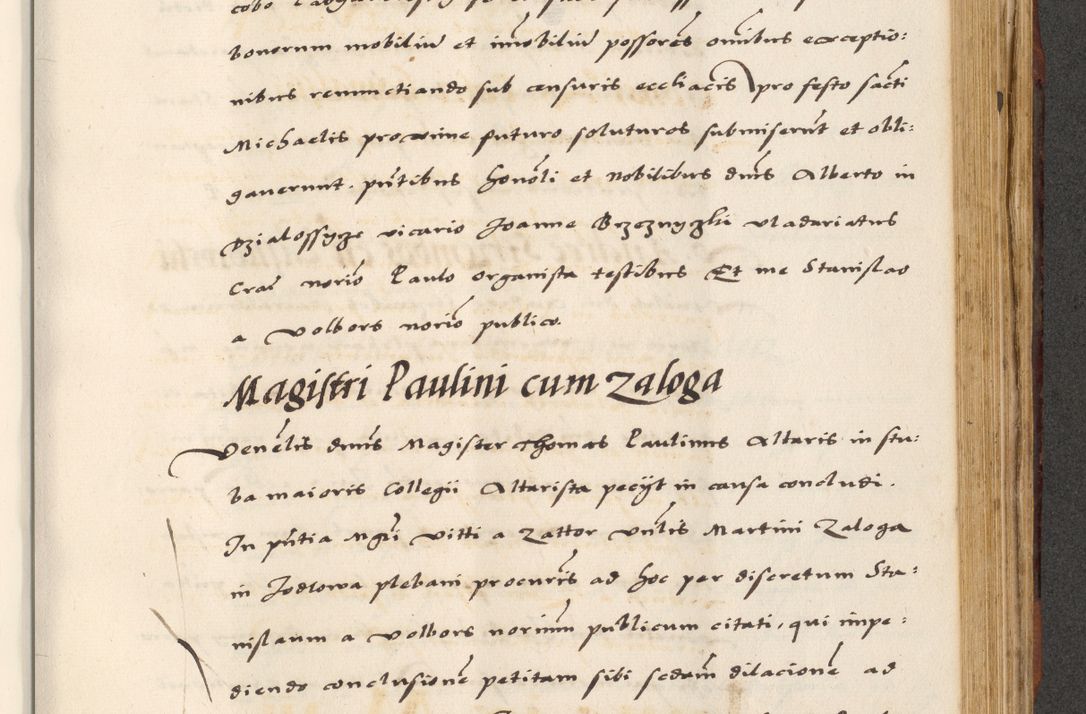 bonorum mobiliu et imobiliu possores omibus exceptio:
nibus renunctiando sub censuris eccliacis pro festo sacti
Michaelis proxime futuro soluturos submiserut et obli:
gaverunt. pntibus honoli et Nobilibus dnis Alberto in
Dzialosszycze vicario Joanne Brzeznyczki vladariatus
Crac norio Paulo organista testibus Et me Stanislao
a Volbors norio publico.
Magistri Paulini cum Zaloga
Venelis dnus Magister Thomas Paulinus Altaris in stu:
ba maioris Collegii Altarista peciit in causa concludi.
In pntia Mgri Vitti a Zattor Vnlis Martini Zaloga
in Jodlowa plebani procuris ad hoc per discretum Sta:
nislaum a Volbors norium publicum citati, qui impe:
diendo conclusione petitam sibi sedam dilacione ad